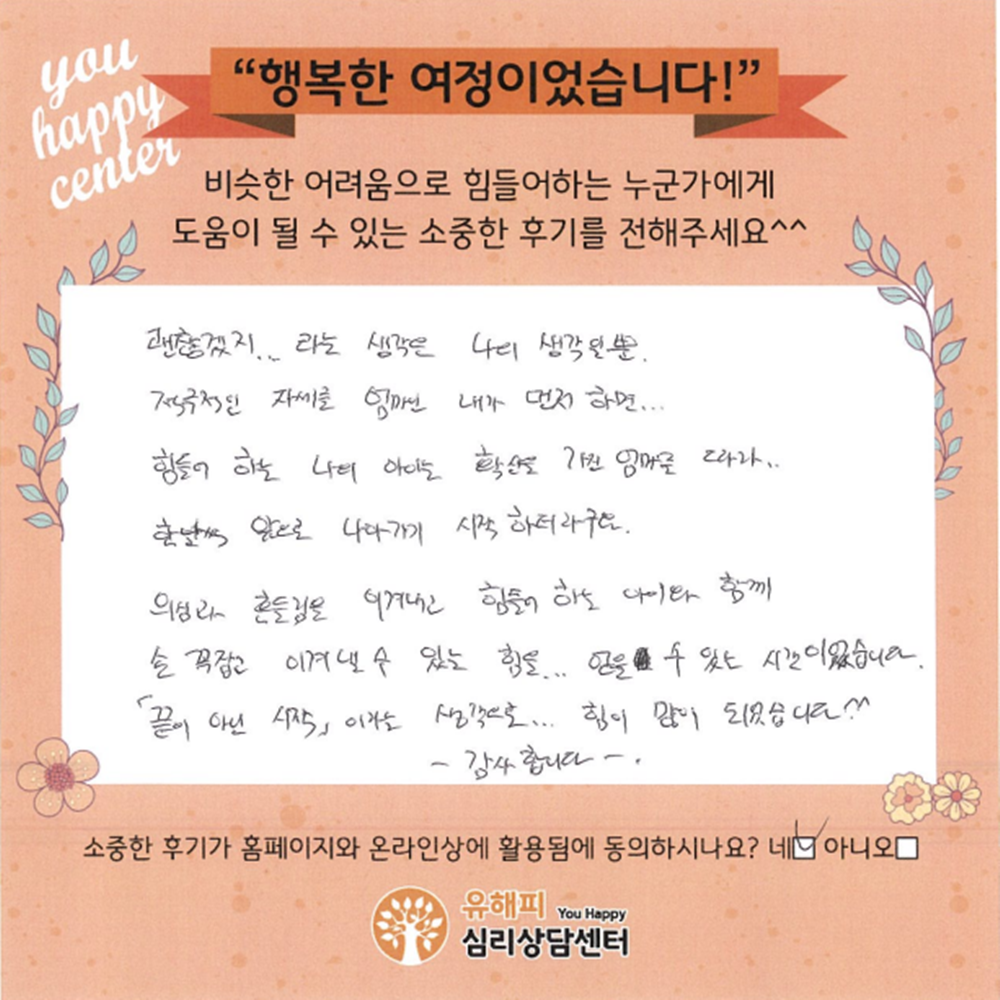 you
happy
center
“행복한 여정이었습니다!”
비슷한 어려움으로 힘들어하는 누군가에게
도움이 될 수 있는 소중한 후기를 전해주세요^^
괜찮겠지... 라는 생각은 나의 생각일뿐.
적극적인 자세를 엄마인 내가 먼저 하면...
힘들어 하는 나의 아이는 확신을 가진 엄마를 따라..
한발씩 앞으로 나아가기 시작 하더라구요.
의심과 흔들림을 이겨내고 힘들어 하는 아이와 함께
손 꼭잡고 이겨낼 수 있는 힘을... 얻을 수 있는 시간이었습니다.
「끝이 아닌 시작」이라는 생각으로... 힘이 많이 되었습니다^^
- 감사합니다 -.
소중한 후기가 홈페이지와 온라인상에 활용됨에 동의하시나요? 네 아니오
유해피 You Happy
심리상담센터